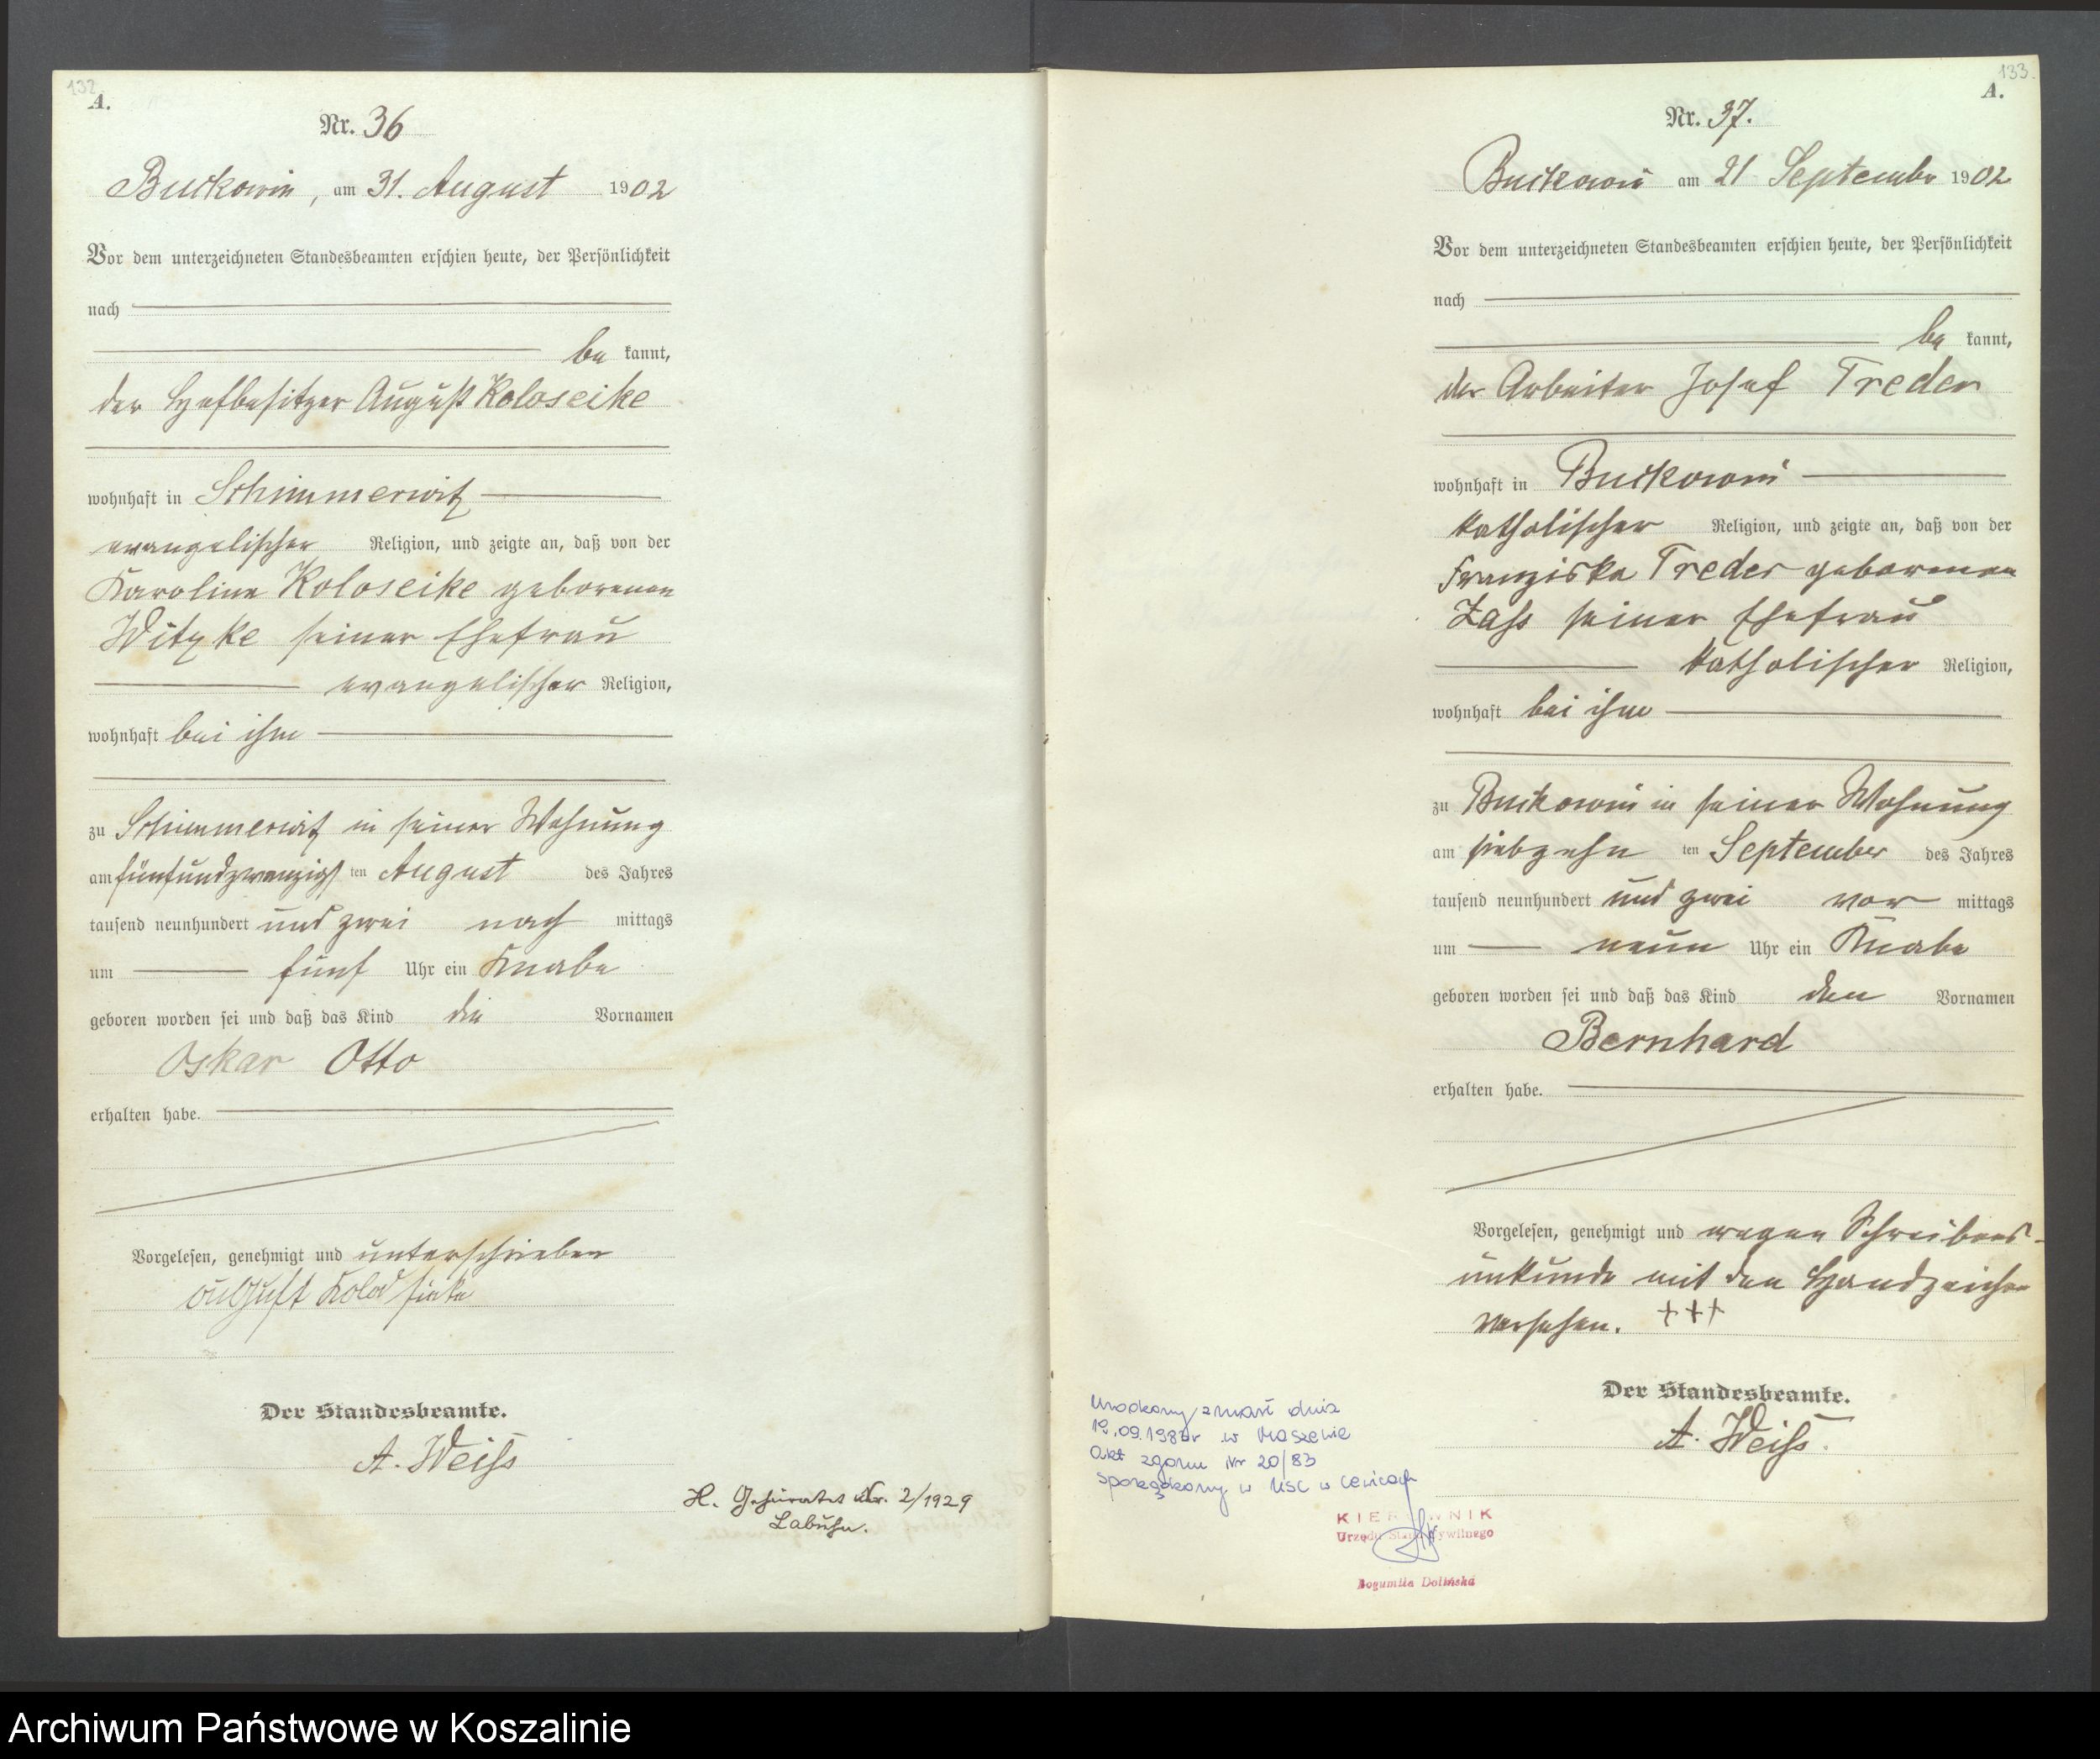 132
A.
Nr. 36
Buckowin, am 31. August 1902
Vor dem unterzeichneten Standesbeamten erschien heute, der Persönlichkeit
nach
be kannt,
der Hofbesitzer August Koloseike
wohnhaft in Schimmerwitz
evangelischer Religion, und zeigte an, daß von der
Karoline Koloseike geborenen
Witzke seiner Ehefrau
evangelischer Religion,
wohnhaft bei ihm
zu Schimmerwitz in seiner Wohnung
am fünfundzwanzigsten August des Jahres
tausend neunhundert und zwei nach mittags
um fünf Uhr ein Knabe
geboren worden sei und daß das Kind die Vornamen
Oskar Otto
erhalten habe.
Vorgelesen, genehmigt und unterschrieben
August
Der Standesbeamte.
A. Weiss
H. Geheiratet Nr. 2/1929
Labuhn.
133.
A.
Nr. 37.
Buckowin am 21 September 1902
Vor dem unterzeichneten Standesbeamten erschien heute, der Persönlichkeit
nach
be kannt,
der Arbeiter Josef Treder
wohnhaft in Buckowin
katholischer Religion, und zeigte an, daß von der
Franziska Treder geborenen
Lass seiner Ehefrau
katholischer Religion,
wohnhaft bei ihm
zu Buckowin in seiner Wohnung
am siebzehn ten September des Jahres
tausend neunhundert und zwei vor mittags
um neun Uhr ein Knabe
geboren worden sei und daß das Kind den Vornamen
Bernhard
erhalten habe.
Vorgelesen, genehmigt und wegen Schreibens-
unkunde mit den Handzeichen
versehen. +++
Der Standesbeamte.
A. Weiss.
Urodzony zmarł dnia
.09.1983r w Maszewie
akt zgonu Nr 20/83
sporządzony w USC w Cewicach
KIEROWNIK
Urzędu Stanu Cywilnego
Bogumiła Dolińska
Archiwum Państwowe w Koszalinie